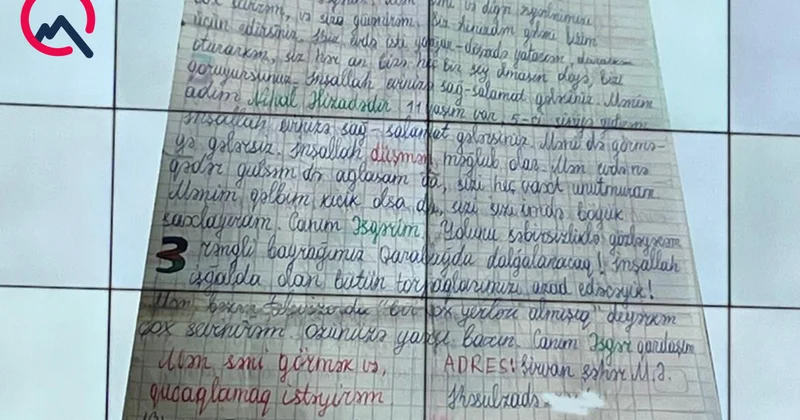 çox sevirəm, və sizə güvənirəm. Biz
üçün edirsiniz. Sizə orda isti yorğan-döşəkdə yatasız,
oturarkən, siz hər an bizə heç bir şey olmasın deyə, bizi
qoruyursunuz. İnşallah evinizə sağ-salamat gələrsiniz. Mənim
adım Nihal Əlizadədir. 11 yaşım var. 5-ci sinifə gedirəm
İnşallah evinizə sağ-salamat gələrsiniz. Məni də görmə-
yə gələrsiz. İnşallah düşmən məğlub olar. Mən evdə nə
qədər gülsəm də ağlasam da, sizi heç vaxt unutmuram.
Mənim qəlbim kiçik olsa da, sizi içimdə böyük
saxlayıram. Canım Əsgərim. Yolunu səbirsizliklə gözləyirəm
3 rəngli bayrağımız Qarabağda dalğalanacaq! İnşallah
işğalda olan bütün torpaqlarımızı azad edəcəyik!
Mən bəzən televizorda "bir çox yerləri almışıq" deyərkən
çox sevinirəm. Özünüzə yaxşı baxın. Canım Əsgər qardaşım
Mən səni görmək və,
qucaqlamaq istəyirəm
ADRES: Şirvan şəhər M.Ə.
Rəsulzadə